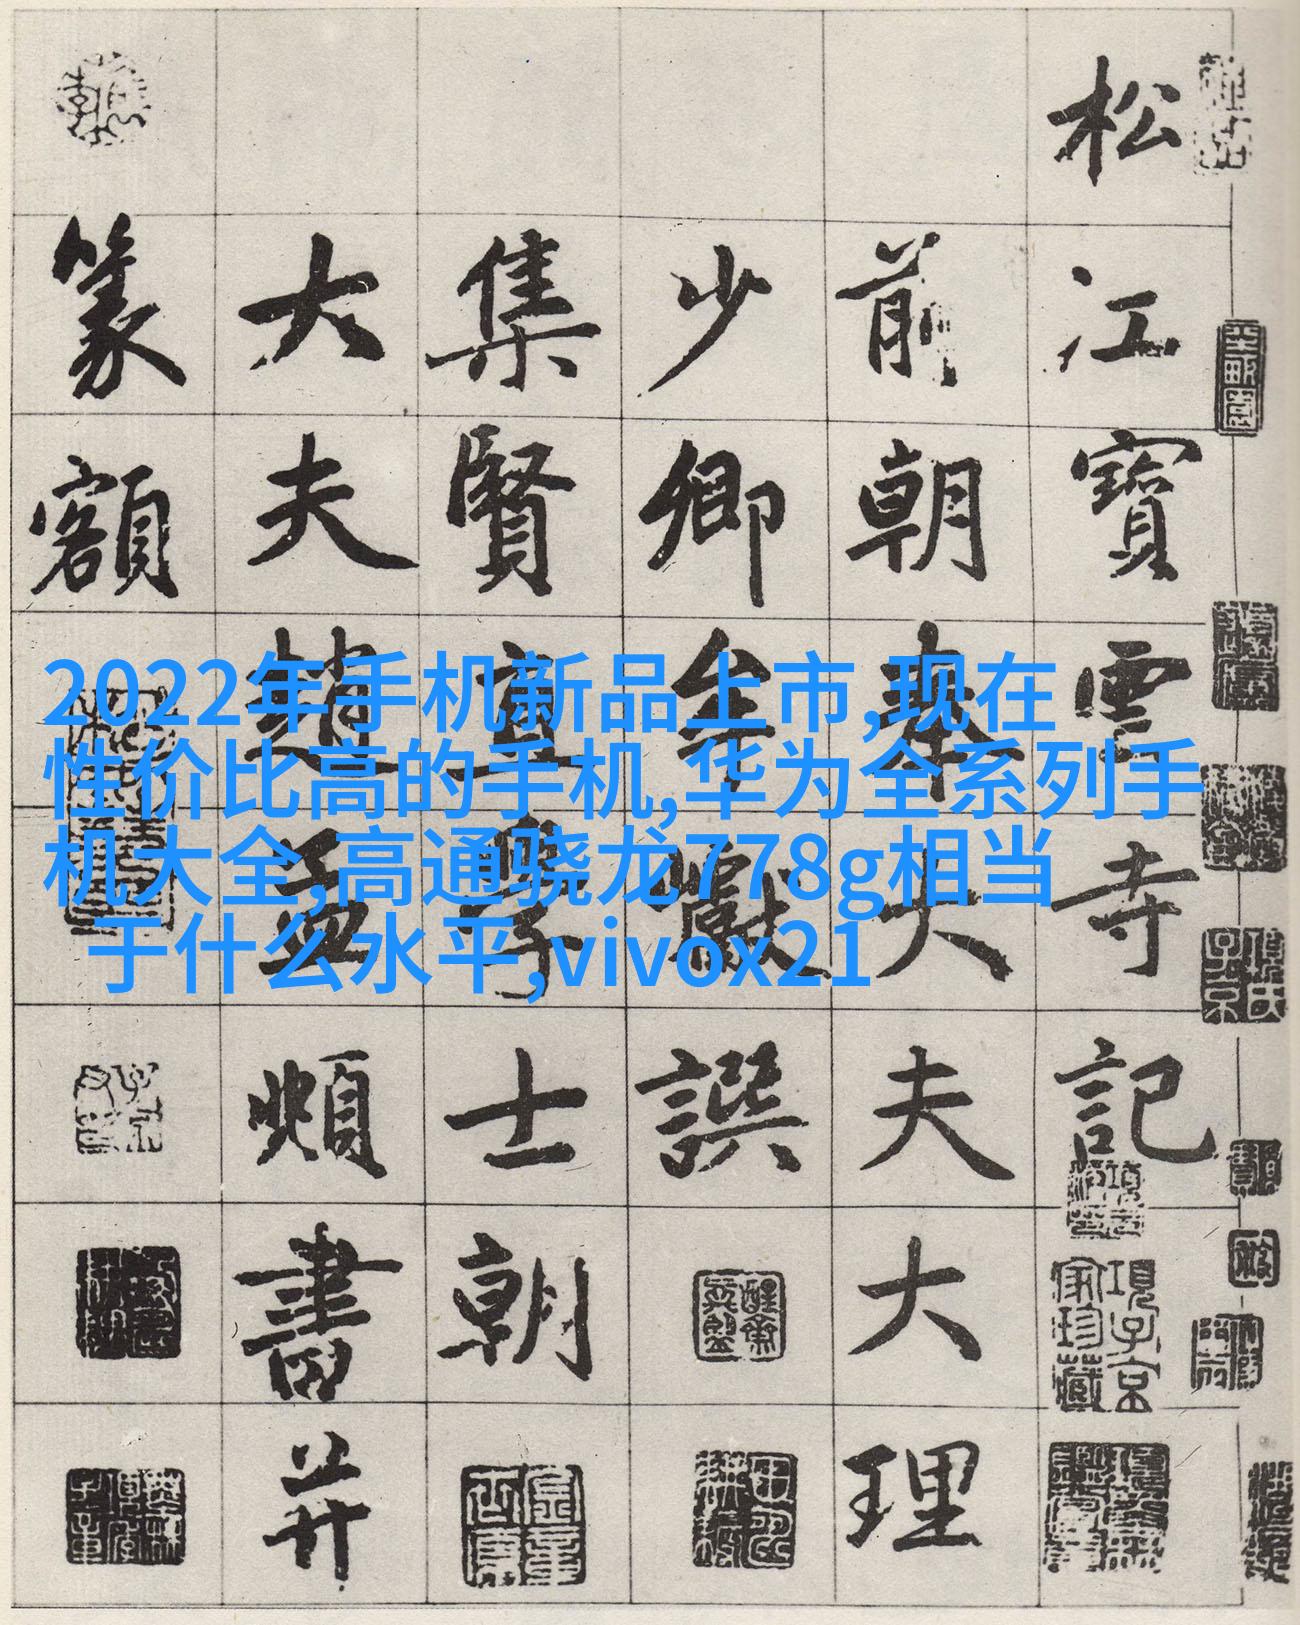 松江寶雲寺記
前朝奉大夫大理
少卿牟巘撰
集賢直學士朝
大夫趙孟頫書并
篆額
2022年手机新品上市,现在
性价比高的手机,华为全系列手
机大全,高通骁龙778g相当
于什么水平,vivox21
項子京
家珍藏